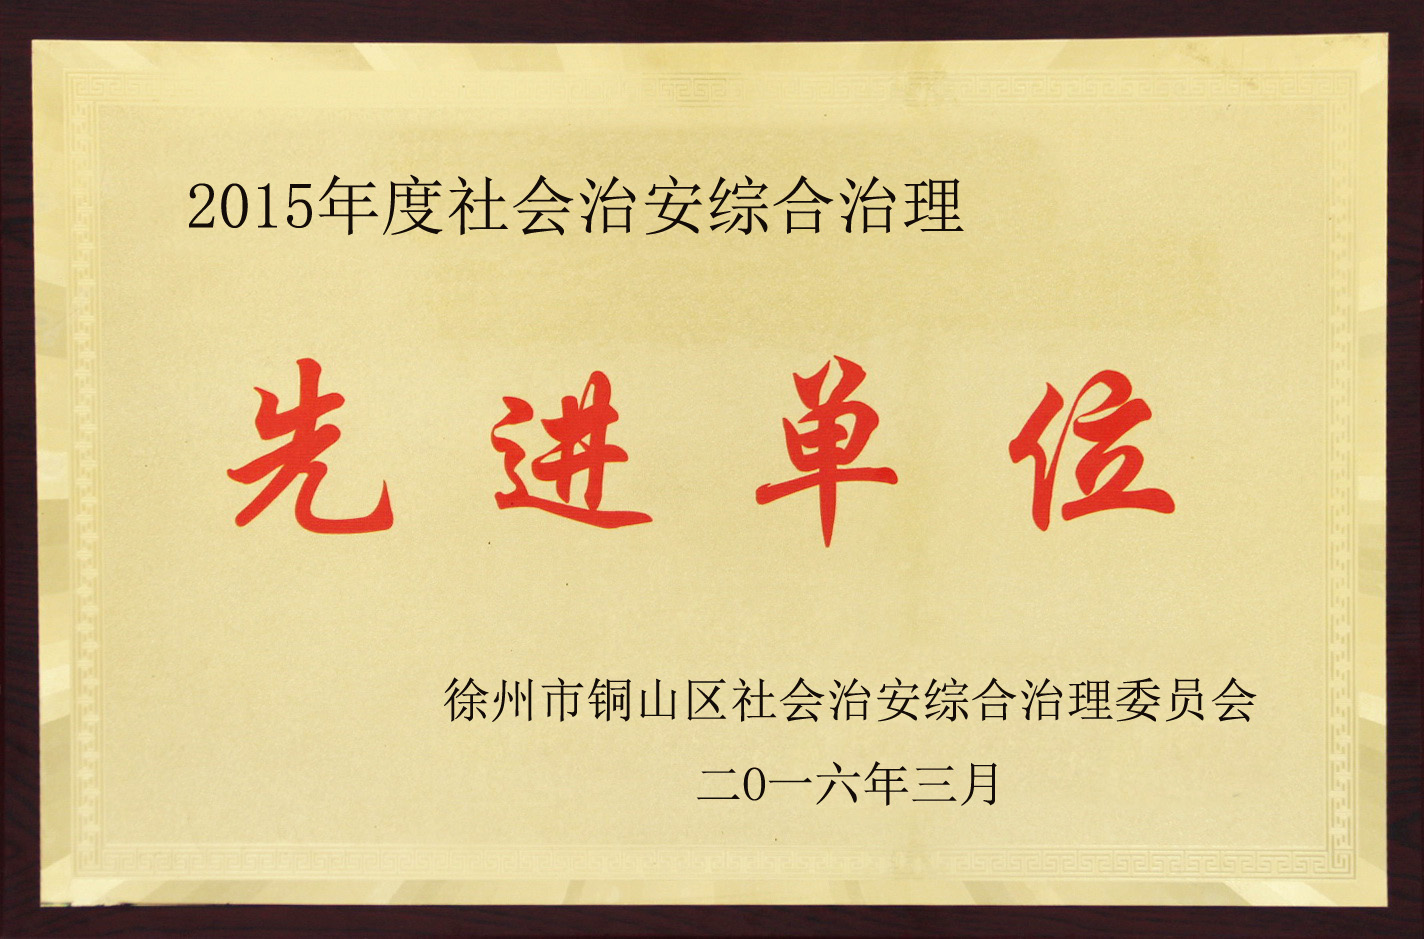 2015年度社会治安综合治理
先进单位
徐州市铜山区社会治安综合治理委员会
二0一六年三月